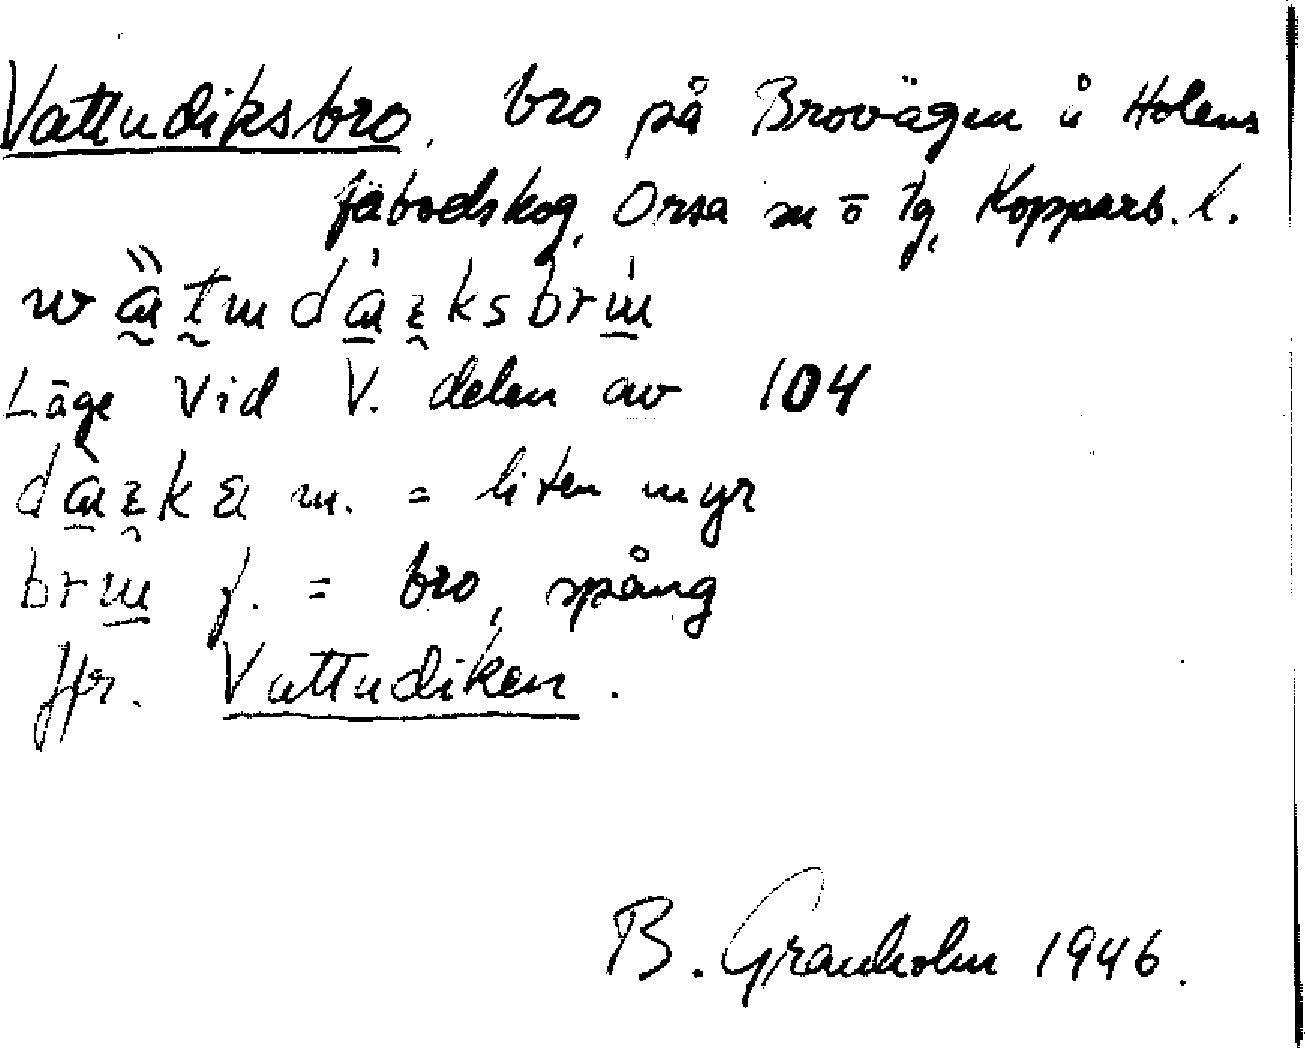 Vattudiksbro, bro på Brovägen å Holens
fäbodskog, Orsa sn o tg, Kopparb. l.
Läge Vid V. delen av 104
m. = liten myr
f. = bro, spång
Jfr. Vattudiken.
B. Granholm 1946.